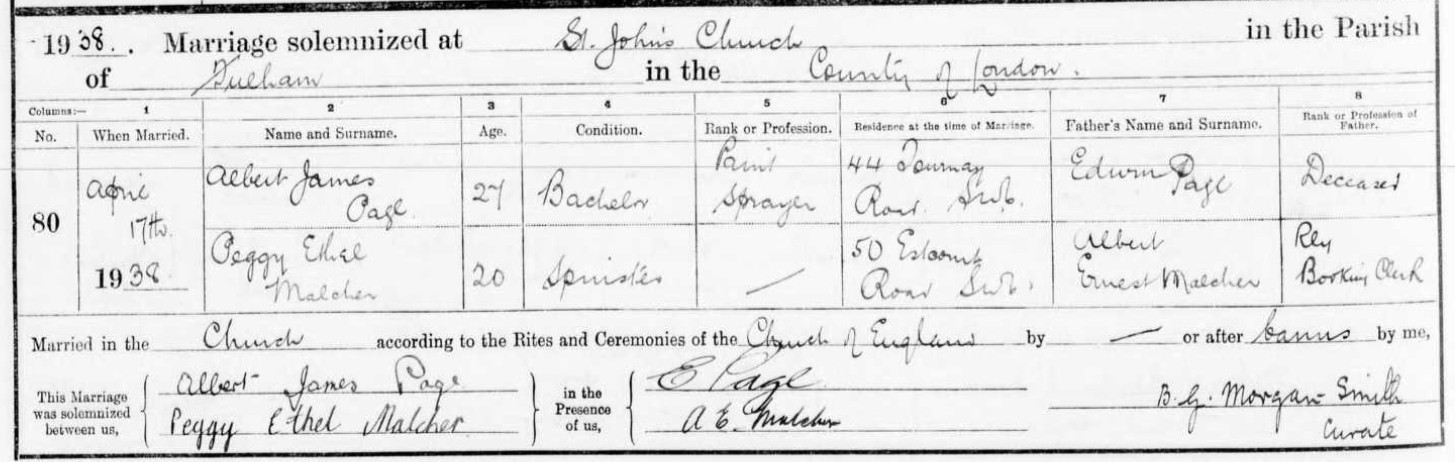 1938. Marriage solemnized at St. John's Church in the Parish
of Fulham in the County of London.
Columns:— 1 2 3 4 5 6 7 8
No. When Married. Name and Surname. Age. Condition. Rank or Profession. Residence at the time of Marriage. Father's Name and Surname. Rank or Profession of Father.
80 April 17th. 1938
Albert James Page 27 Bachelor Paint Sprayer 44 Tournay Road. S.W.6. Edwin Page Deceased
Peggy Ethel Malcher 20 Spinster — 50 Estcourt Road S.W.6. Albert Ernest Malcher Rly Booking Clerk
Married in the Church according to the Rites and Ceremonies of the Church of England by — or after banns by me,
This Marriage was solemnized between us,
Albert James Page
Peggy Ethel Malcher
in the Presence of us,
E Page
A E. Malcher
B. G. Morgan Smith
Curate